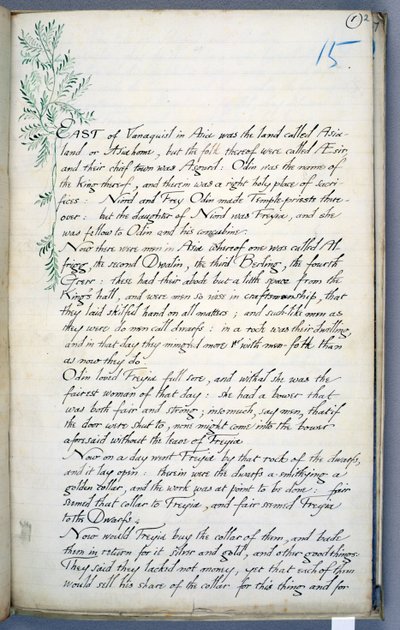 (1) 2
15
EAST of Vanaquisl in Asia was the land called Asia-
land or Asiahome, but the folk thereof were called Æsir,
and their chief town was Asgard: Odin was the name of
the King thereof, and therein was a right holy place of sacri-
fices: Niord and Frey Odin made Temple-priests there
over: but the daughter of Niord was Freyia, and she
was fellow to Odin and his concubine.
Now there were men in Asia whereof one was called Al
frigg, the second Dwalin, the third Berling, the fourth
Grerr: these had their abode but a little space from the
King's hall, and were men so wise in craftsmanship, that
they laid skilful hand on all matters; and such-like men as
they were do men call dwarfs: in a rock was their dwelling,
and in that day they mingled more with men-folk than
as now they do.
Odin loved Freyia full sore, and withal she was the
fairest woman of that day: she had a bower that
was both fair and strong; insomuch, say men, that if
the door were shut to, none might come into the bower
aforesaid without the leave of Freyia
Now on a day went Freyia by that rock of the dwarfs,
and it lay open: therein were the dwarfs a-smithying a
golden collar, and the work was at point to be done: fair
seemed that collar to Freyia, and fair seemed Freyia
to the Dwarfs.
Now would Freyia buy the collar of them, and bade
them in return for it silver and gold, and other good things.
They said they lacked not money, yet that each of them
would sell his share of the collar for this thing and for